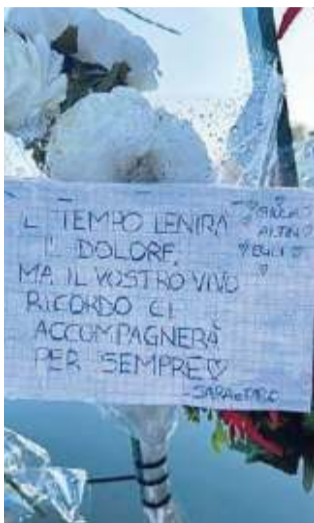 IL TEMPO LENIRÀ
IL DOLORE,
MA IL VOSTRO VIVO
RICORDO CI
ACCOMPAGNERÀ
PER SEMPRE♡
♡GIULIA♡
♡BULI♡